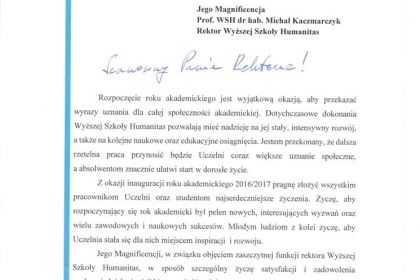 Jego Magnificencja
Prof. WSH dr hab. Michał Kaczmarczyk
Rektor Wyższej Szkoły Humanitas
Szanowny Panie Rektorze!
Rozpoczęcie roku akademickiego jest wyjątkową okazją, aby przekazać
wyrazy uznania dla całej społeczności akademickiej. Dotychczasowe dokonania
Wyższej Szkoły Humanitas pozwalają mieć nadzieję na jej stały, intensywny rozwój,
a także na kolejne naukowe oraz edukacyjne osiągnięcia. Jestem przekonany, że dalsza
rzetelna praca przynosić będzie Uczelni coraz większe uznanie społeczne,
a absolwentom znacznie ułatwi start w dorosłe życie.
Z okazji inauguracji roku akademickiego 2016/2017 pragnę złożyć wszystkim
pracownikom Uczelni oraz studentom najserdeczniejsze życzenia. Życzę, aby
rozpoczynający się rok akademicki był pełen nowych, interesujących wyzwań oraz
wielu zawodowych i naukowych sukcesów. Młodym ludziom z kolei życzę, aby
Uczelnia stała się dla nich miejscem inspiracji i rozwoju.
Jego Magnificencji, w związku objęciem zaszczytnej funkcji rektora Wyższej
Szkoły Humanitas, w sposób szczególny życzę satysfakcji i zadowolenia